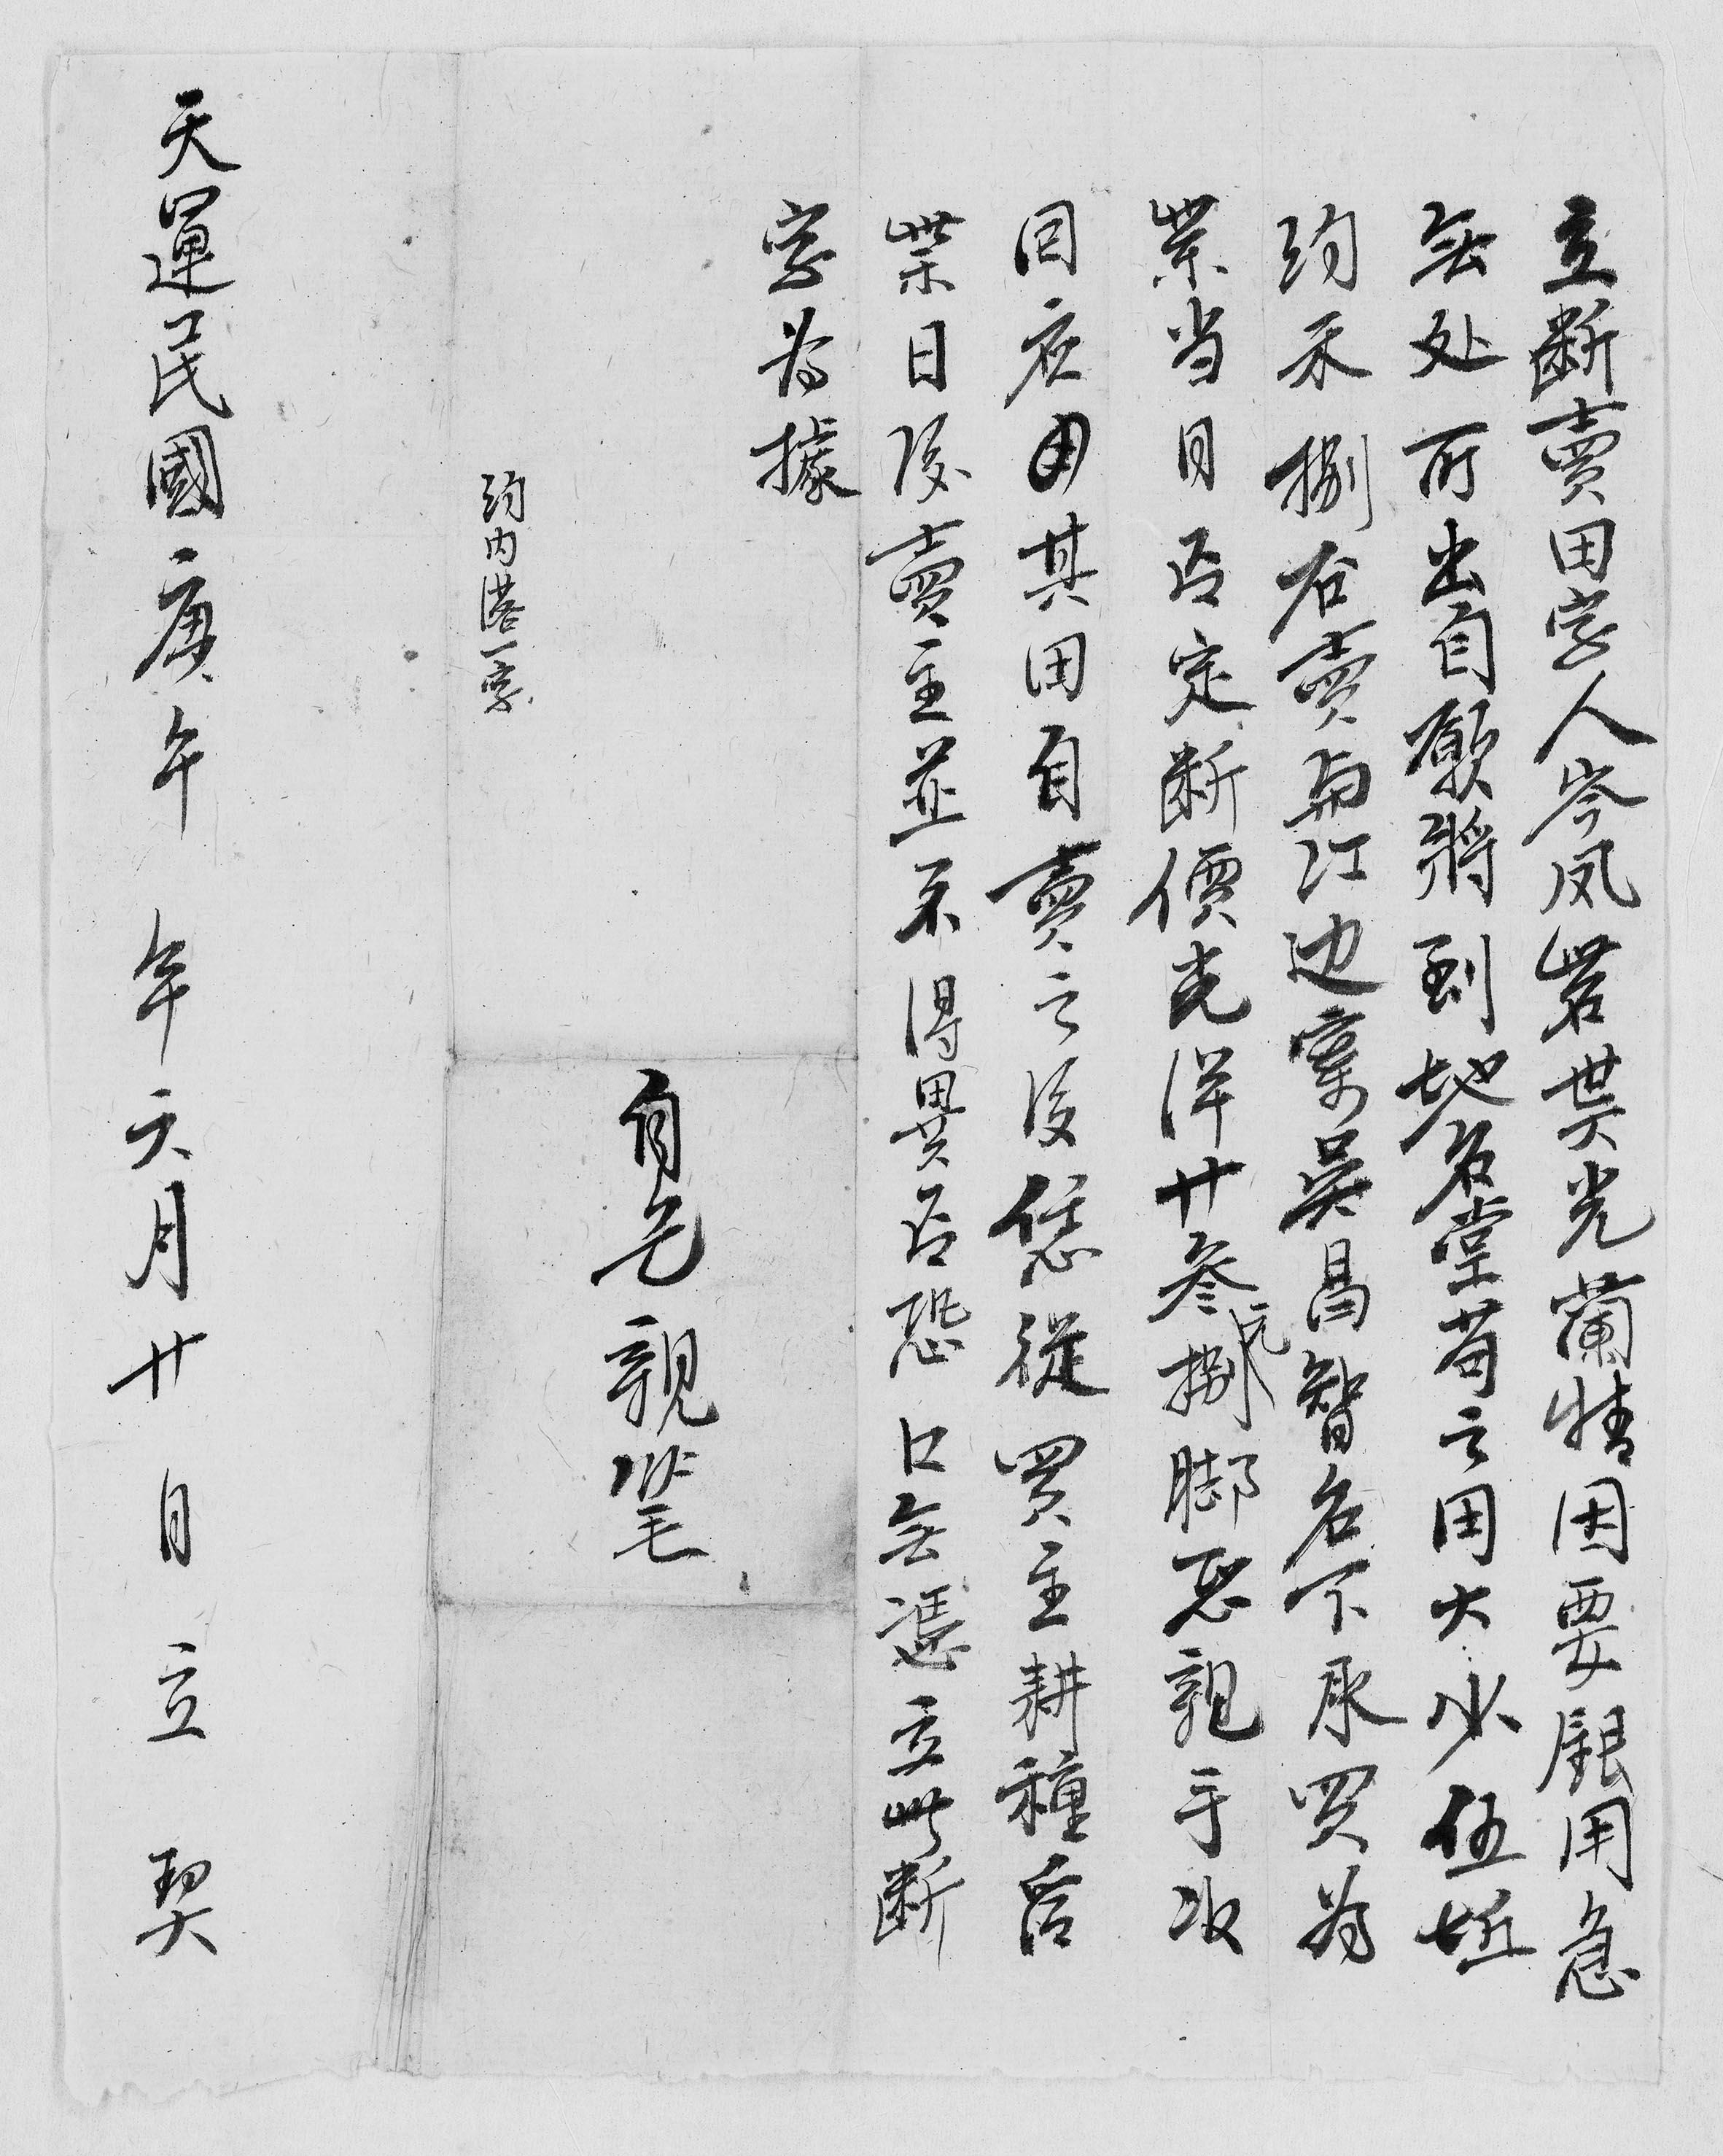 立断賣田字人岑凤岩世光蘭情因要銀用急
無处所出自願將到地名堂苟之田大小伍坵
約禾捌石賣與江边寨吳昌智名下承買為
業当日言定断價光洋廿叁元捌脚正親手收
回应用其田自賣之後恁從買主耕種管
業日後賣主並不得異言恐口無憑立此断
字為據
約内落一字
自光親筆
天運民國庚午年六月廿日立契